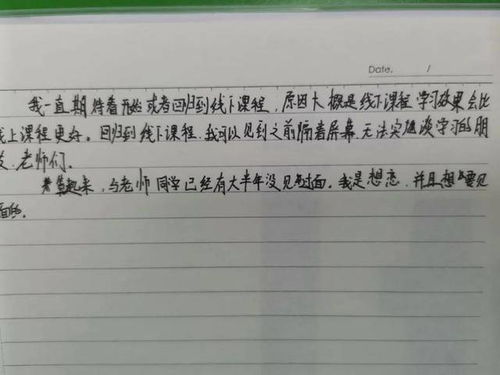 Date. /
我一直期待着开始或者回归到线下课程,原因大概是线下课程学习效果会比
线上课程更好。回归到线下课程,我可以见到之前隔着屏幕无法实施谈学习的朋
友、老师们。
算起来,与老师同学已经有大半年没见过面。我是想恋,并且想要见
面的。